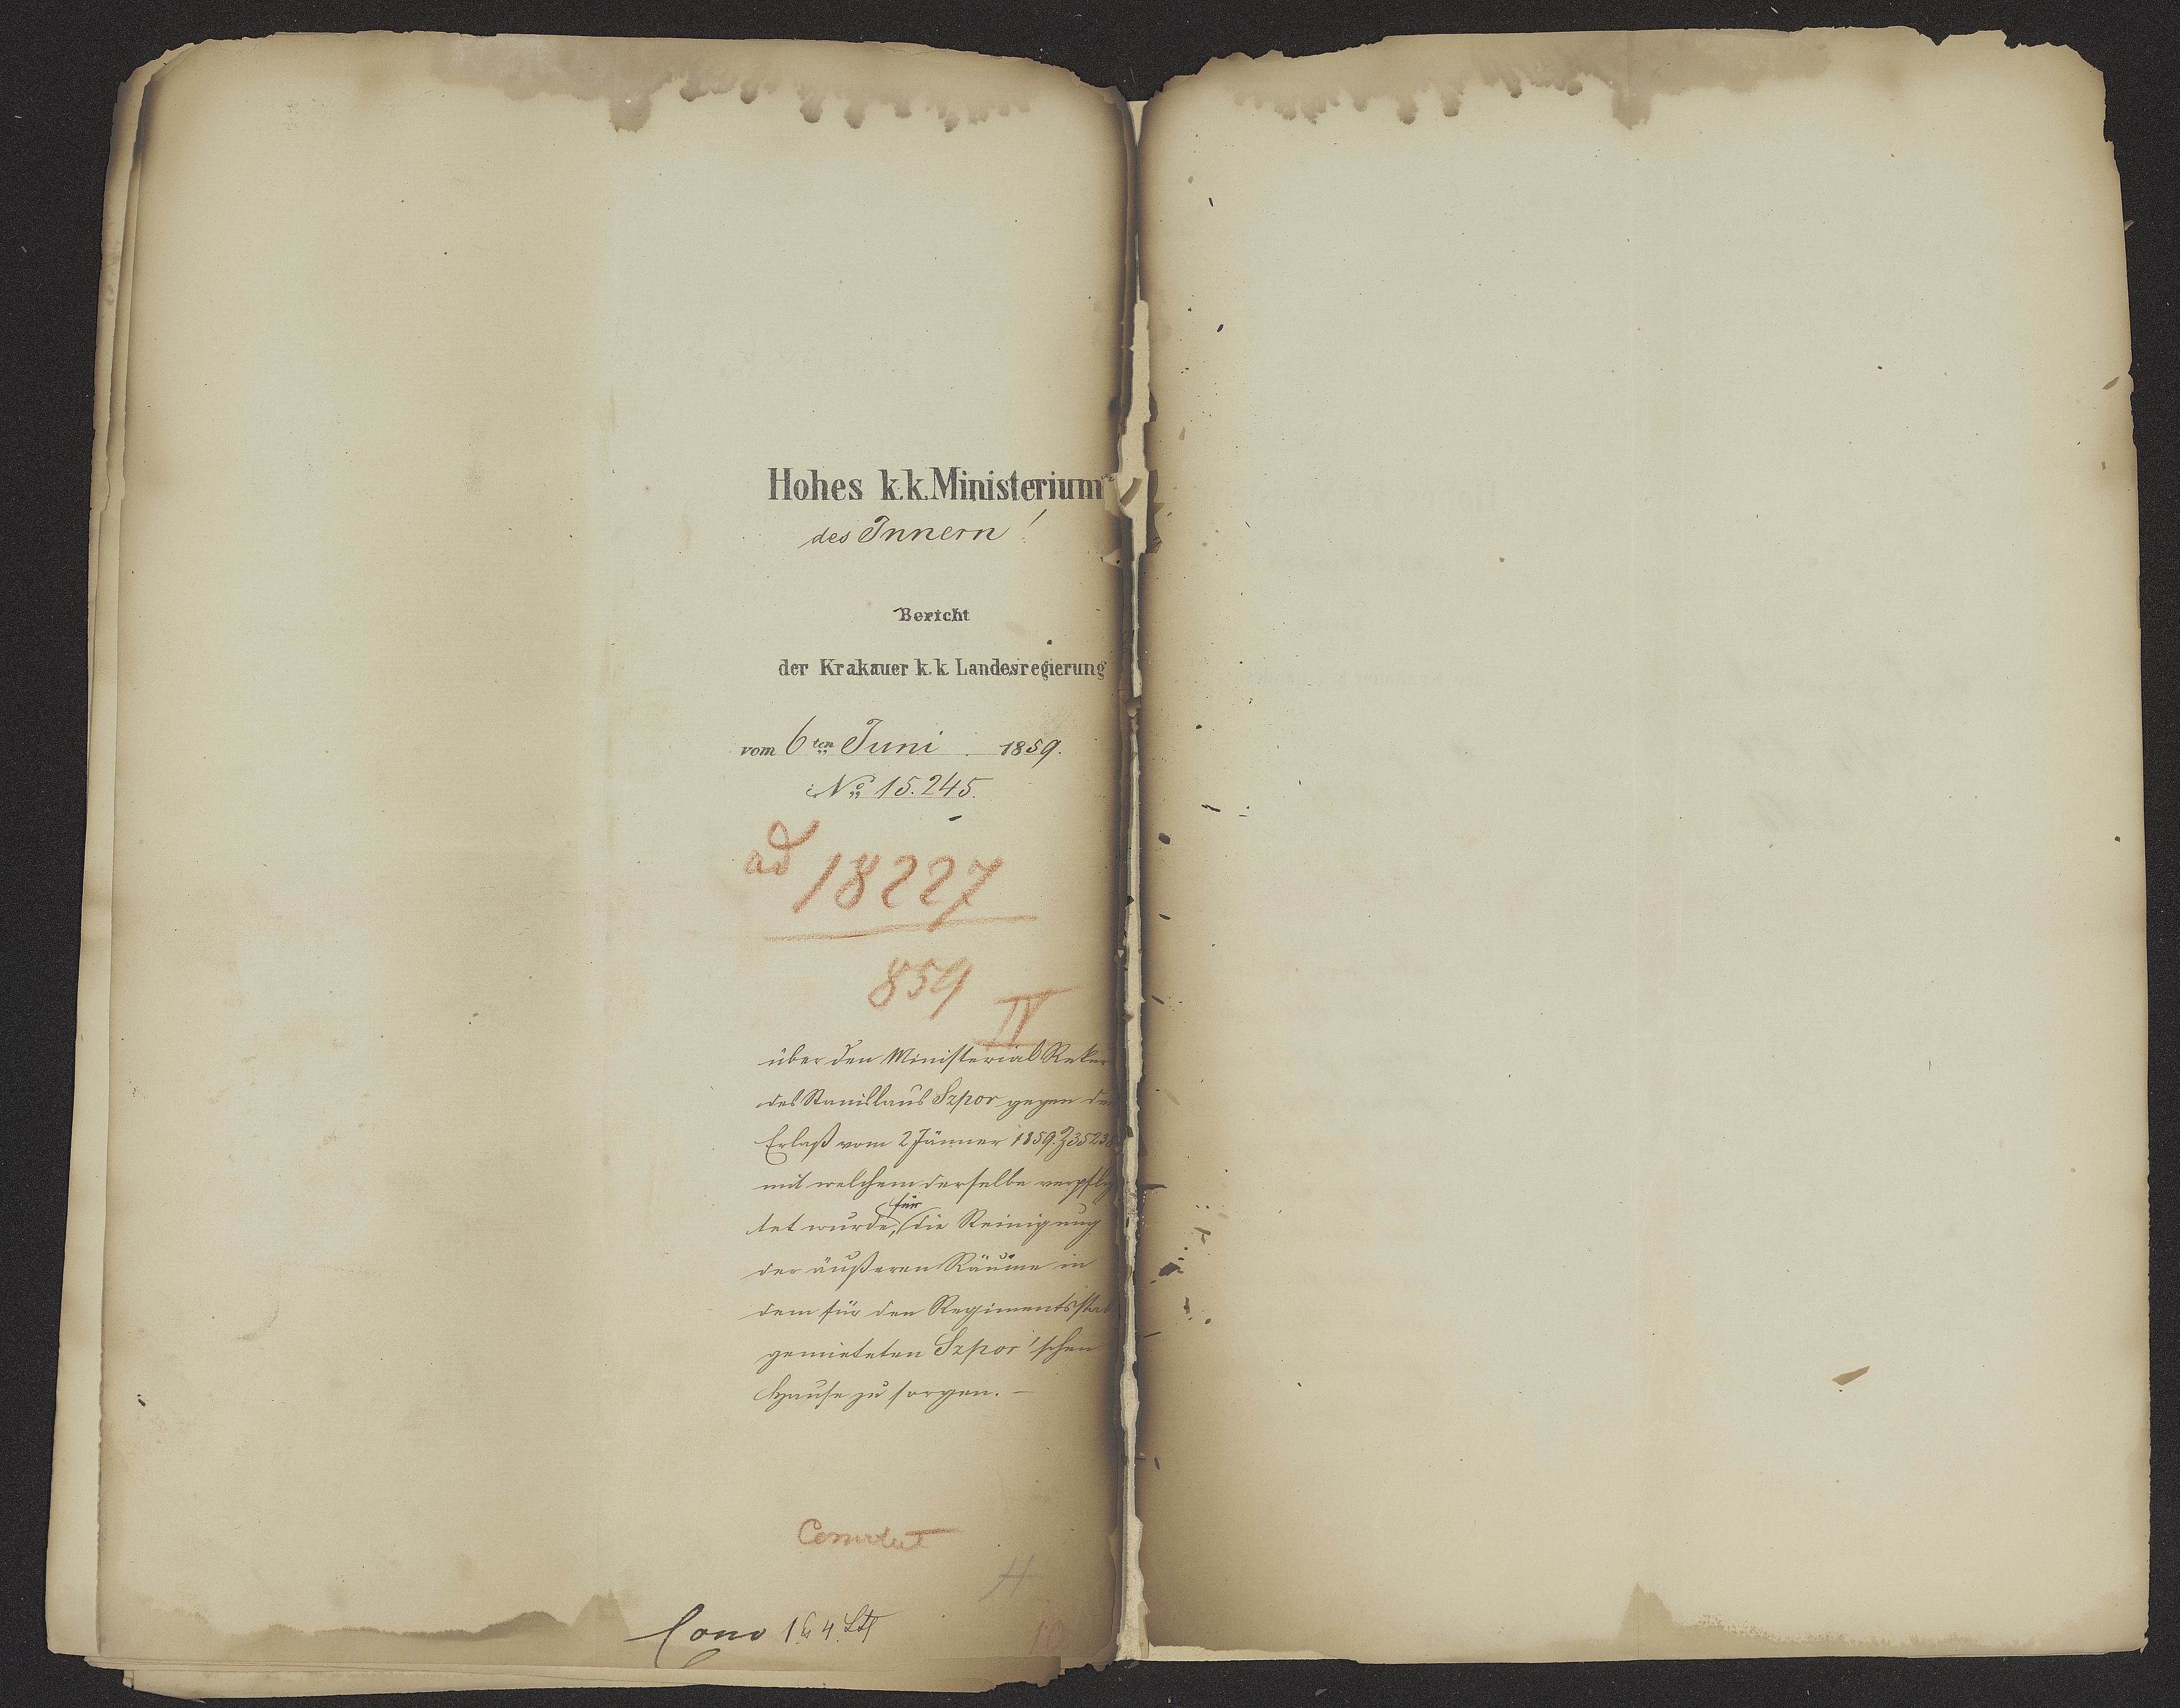 Hohes k.k. Ministerium
des Innern!
Bericht
der Krakauer k.k. Landesregierung
vom 6ten Juni 1859.
No 15.245.
ad 18227
859
IV
über den Ministerial Rekur
des Stanislaus Szpor gegen den
Erlaß vom 2 Jänner 1859. Z 3523
mit welchem derselbe verpflich
tet wurde, für die Reinigung
der äußeren Räume in
dem für den Regimentsstab
gemieteten Szpor'schen
Hause zu sorgen. —